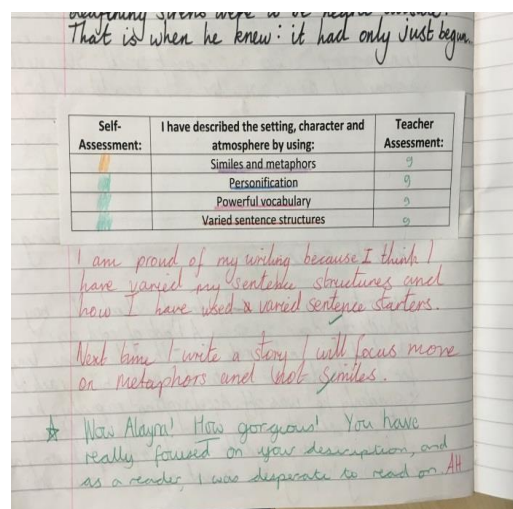 That is when he knew: it had only just begun.
Self-Assessment:
I have described the setting, character and atmosphere by using:
Teacher Assessment:
Similes and metaphors
g
Personification
g
Powerful vocabulary
g
Varied sentence structures
g
I am proud of my writing because I think I
have varied my sentence structures and
how I have used a varied sentence starters.
Next time I write a story I will focus more
on metaphors and not similes.
Wow Alayna! How gorgeous! You have
really focused on your description, and
as a reader, I was desperate to read on AH